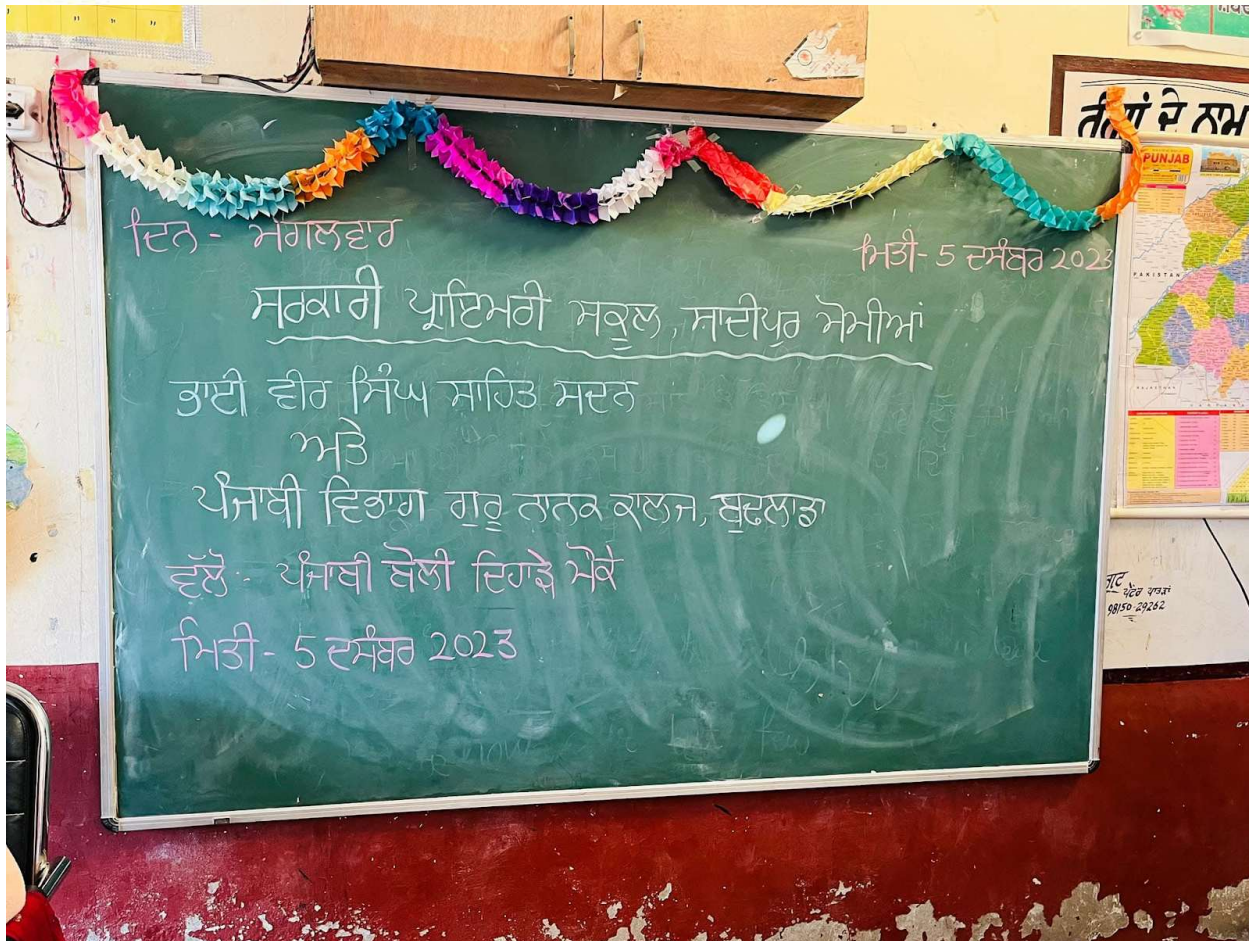 ਦਿਨ - ਮੰਗਲਵਾਰ
ਮਿਤੀ- 5 ਦਸੰਬਰ 2023
ਸਰਕਾਰੀ ਪ੍ਰਾਇਮਰੀ ਸਕੂਲ, ਸ਼ਾਦੀਪੁਰ ਮੋਮੀਆਂ
ਭਾਈ ਵੀਰ ਸਿੰਘ ਸਾਹਿਤ ਸਦਨ
ਅਤੇ
ਪੰਜਾਬੀ ਵਿਭਾਗ ਗੁਰੂ ਨਾਨਕ ਕਾਲਜ, ਬੁਢਲਾਡਾ
ਵੱਲੋਂ - ਪੰਜਾਬੀ ਬੋਲੀ ਦਿਹਾੜੇ ਮੌਕੇ
ਮਿਤੀ- 5 ਦਸੰਬਰ 2023
ਦੇ ਨਾਮ
PUNJAB
PAKISTAN
RAJASTHAN
ਪੇਂਟਰ
98150-29262